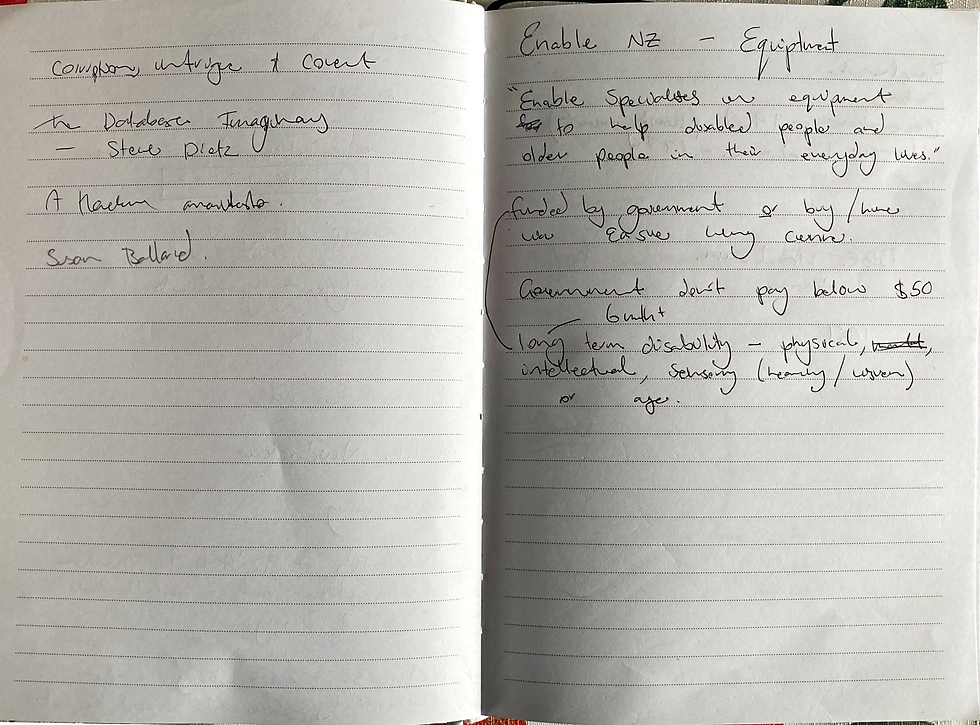 Corruption, intrige & Covert
The Database Imaginary
— Steve Dietz
A Hacker manifesto.
Susan Ballard.
Enable NZ — Equiptment
"Enable Specialises in equipment
to help disabled people and
older people in their everyday lives."
funded by government or buy / hire
via Easie living centre.
Government don't pay below $50
6mth+
long term disability — physical,
intellectual, sensory (hearing / vision)
or age.